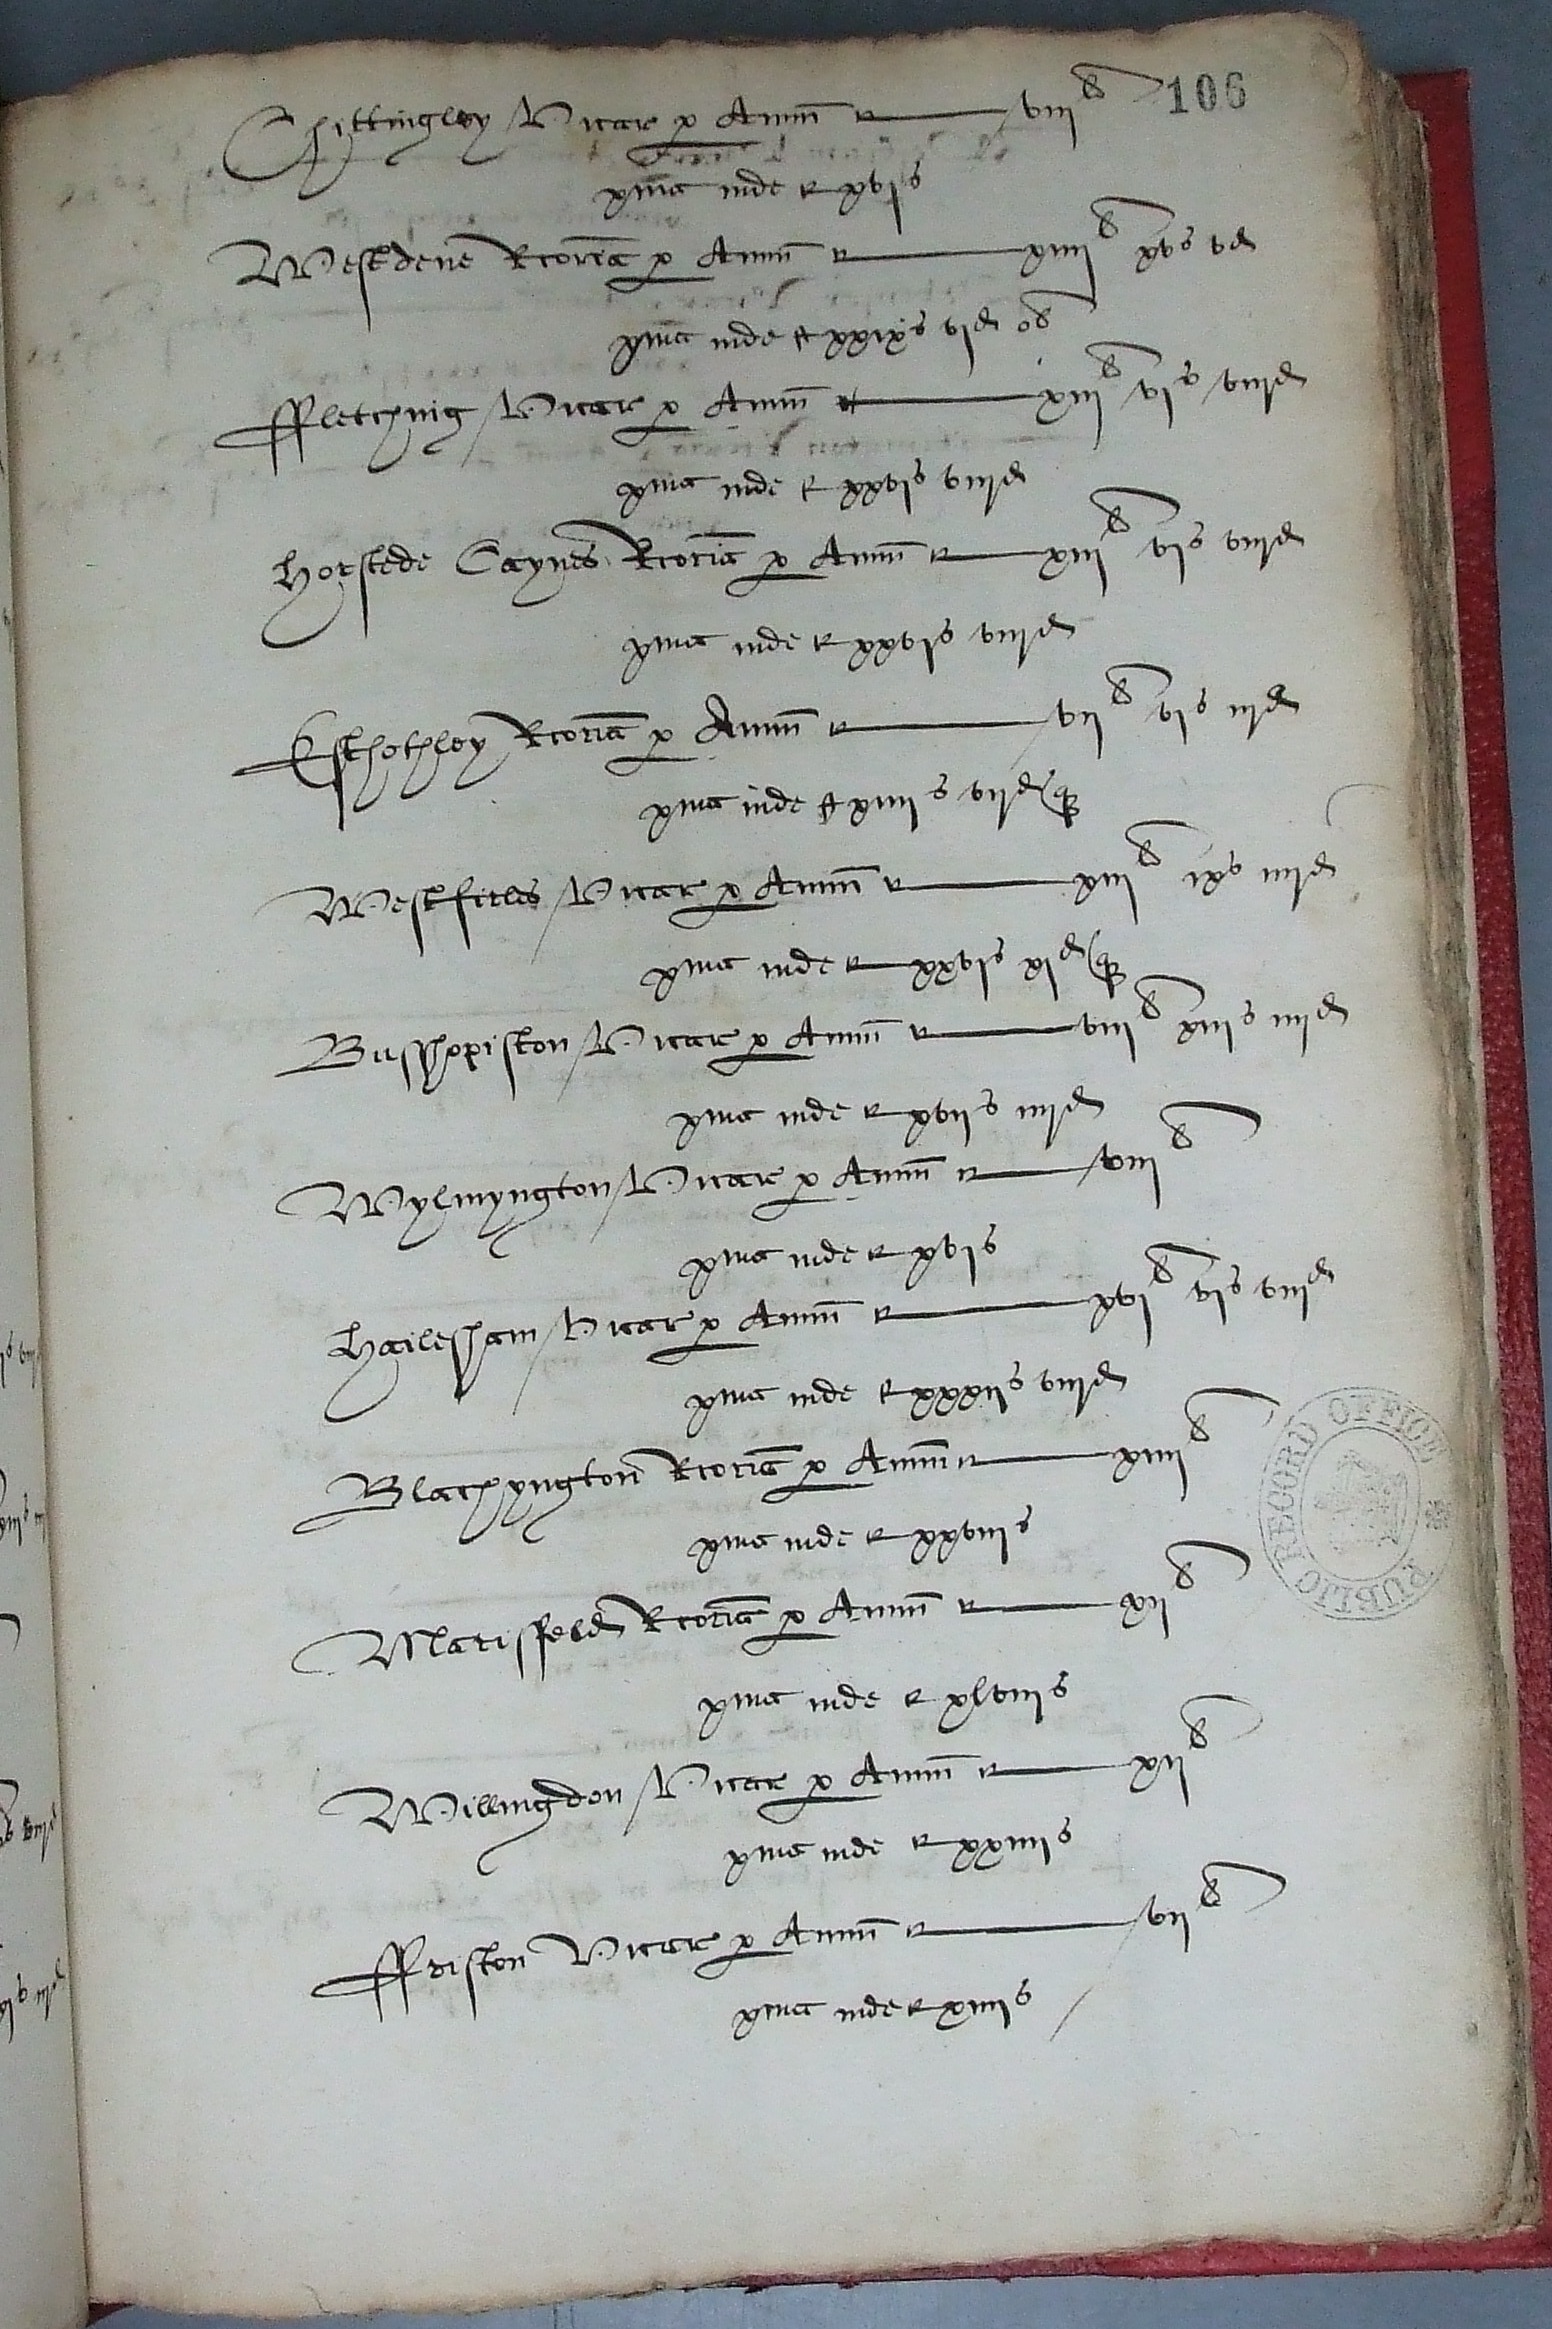 106
Chittingley Vicar p Annu͞ — viijˡⁱ
xma inde — xvjs
Westdene Rcoria p Annu͞ — xiiijˡⁱ xvs vd
xma inde — xxixs vjd ob
Ffletching Vicar p Annu͞ — xiijˡⁱ vjs viijd
xma inde — xxvjs viijd
Horstede Caynes Rcoria p Annu͞ — xiijˡⁱ vjs viijd
xma inde — xxvjs viijd
Esthothley Rcoria p Annu͞ — vijˡⁱ vjs iijd
xma inde — xiiijs vijd q
Westfirles Vicar p Annu͞ — xiijˡⁱ ixs iiijd
xma inde — xxvjs xjd q
Busshopiston Vicar p Annu͞ — viijˡⁱ xiijs iiijd
xma inde — xvijs iiijd
Wylmyngton Vicar p Annu͞ — viijˡⁱ
xma inde — xvjs
Hailesham Vicar p Annu͞ — xvjˡⁱ vjs viijd
xma inde — xxxijs viijd
Blachyngton Rcoria p Annu͞ — xiiijˡⁱ
xma inde — xxviijs
Marisfeld Rcoria p Annu͞ — xijˡⁱ
xma inde — xlviijs
Willingdon Vicar p Annu͞ — xijˡⁱ
xma inde — xxiiijs
Ffriston Vicar p Annu͞ — vijˡⁱ
xma inde — xiiijs
PUBLIC RECORD OFFICE